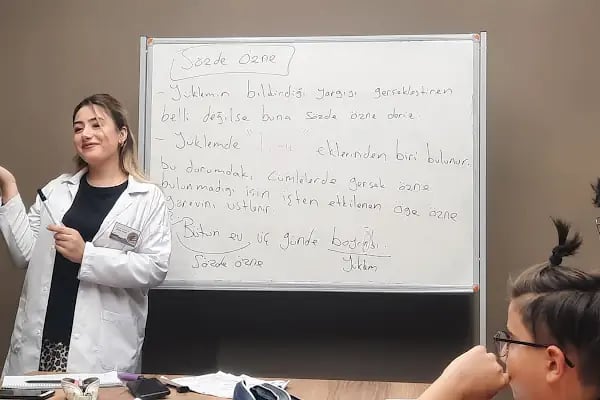 Sözde Özne
- Yüklemin bildirdiği yargıyı gerçekleştiren
belli değilse buna sözde özne denir.
- Yüklemde eklerinden biri bulunur.
bu durumdaki cümlelerde gerçek özne
bulunmadığı için işten etkilenen öge özne
görevini üstlenir
Bütün ev üç günde boyandı.
Sözde özne Yüklem